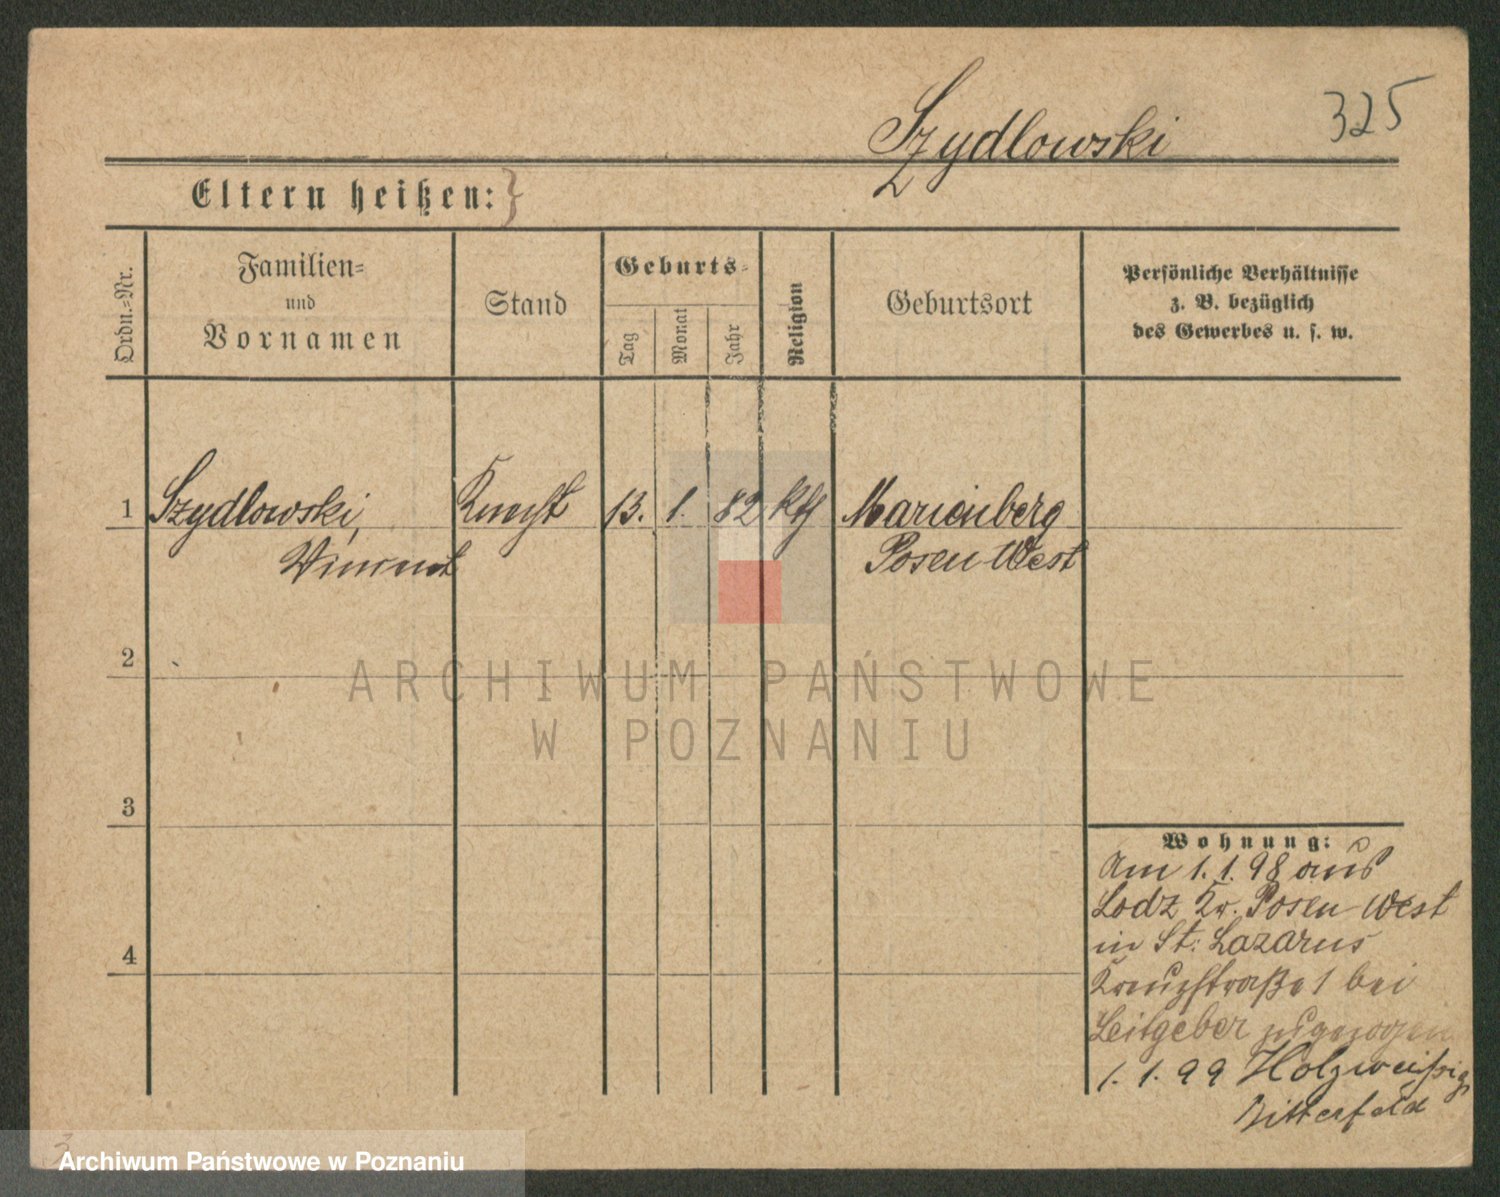 325
Szydlowski
Eltern heißen: }
Ordn.-Nr.
Familien-
und
Vornamen
Stand
Geburts-
Tag
Monat
Jahr
Religion
Geburtsort
Persönliche Verhältnisse
z. B. bezüglich
des Gewerbes u. s. w.
1 Szydlowski, Knecht 13. 1. 82 kth Marienberg
Vincent Posen West
2
ARCHIWUM PAŃSTWOWE
W POZNANIU
3
Wohnung:
Am 1. 1. 98 aus
Lodz Kr. Posen-West
in St. Lazarus
4
Kreuzstraße 1 bei
Leitgeber zugezogen
1. 1. 99 Holzweißig
Bitterfeld
Archiwum Państwowe w Poznaniu